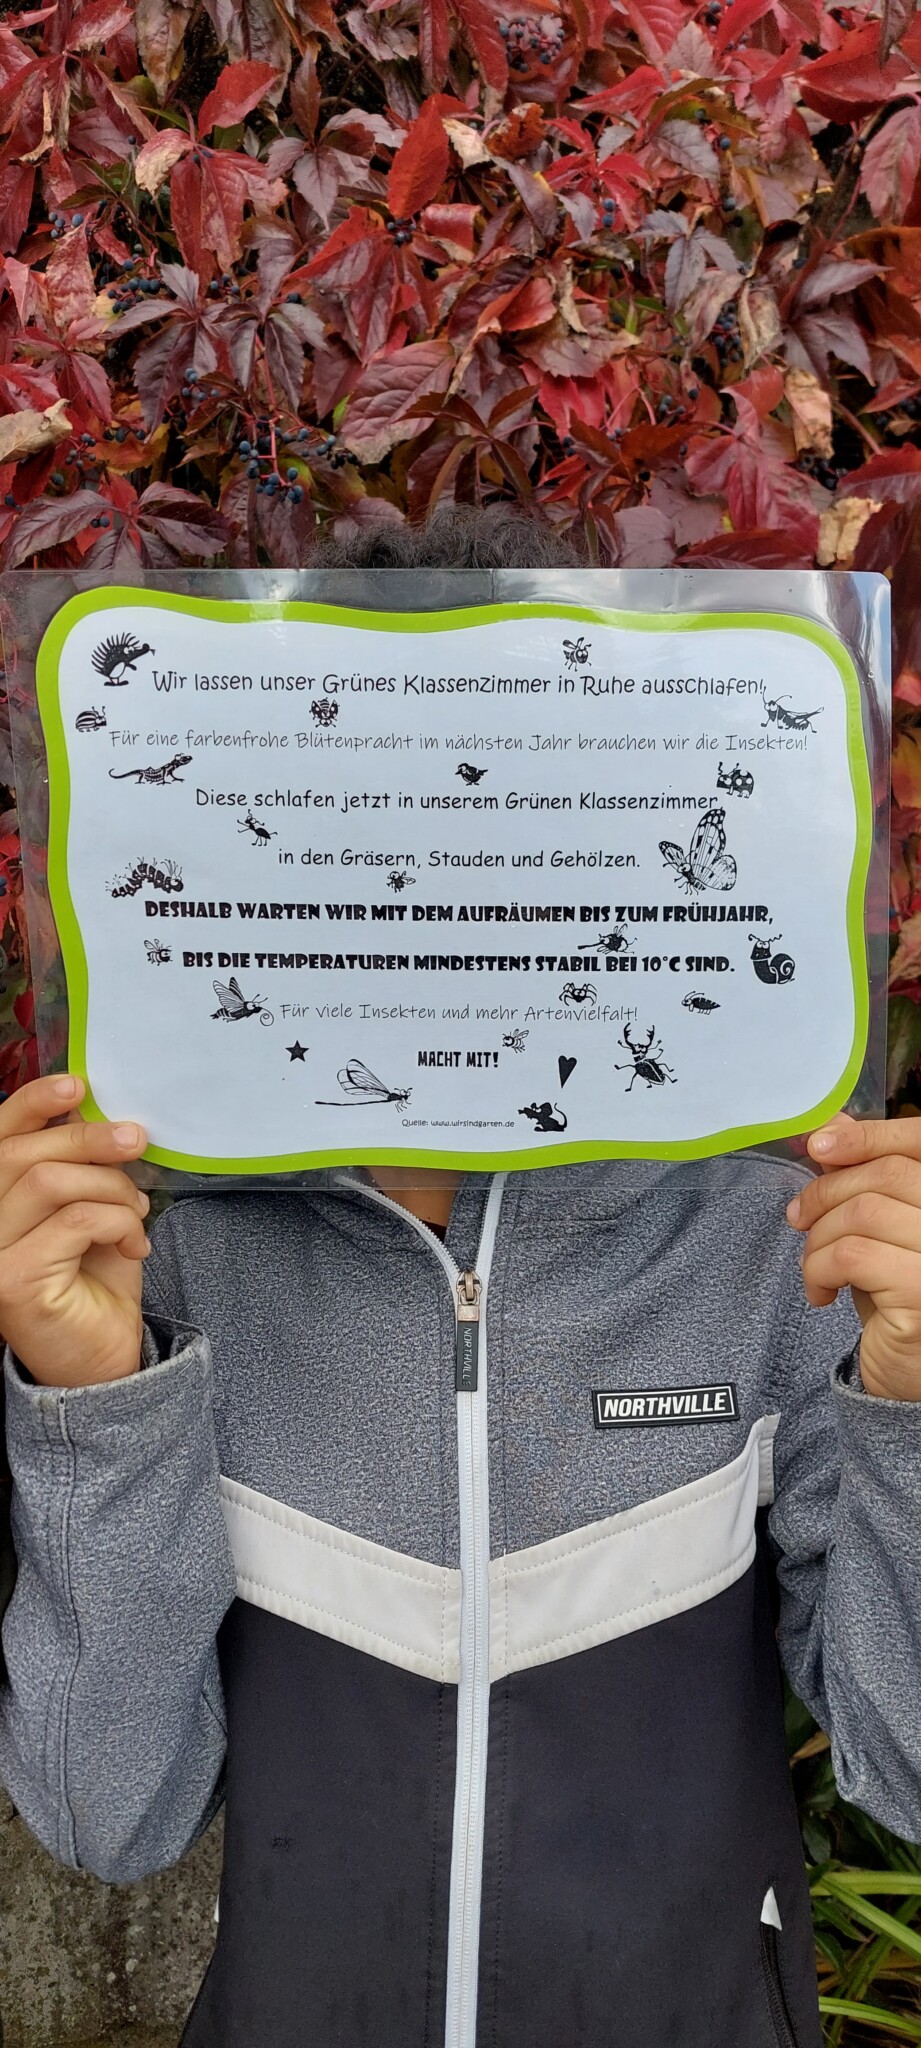 Wir lassen unser Grünes Klassenzimmer in Ruhe ausschlafen!
Für eine farbenfrohe Blütenpracht im nächsten Jahr brauchen wir die Insekten!
Diese schlafen jetzt in unserem Grünen Klassenzimmer
in den Gräsern, Stauden und Gehölzen.
DESHALB WARTEN WIR MIT DEM AUFRÄUMEN BIS ZUM FRÜHJAHR,
BIS DIE TEMPERATUREN MINDESTENS STABIL BEI 10°C SIND.
Für viele Insekten und mehr Artenvielfalt!
MACHT MIT!
Quelle: www.wirsindgarten.de
NORTHVILLE
NORTHVILLE